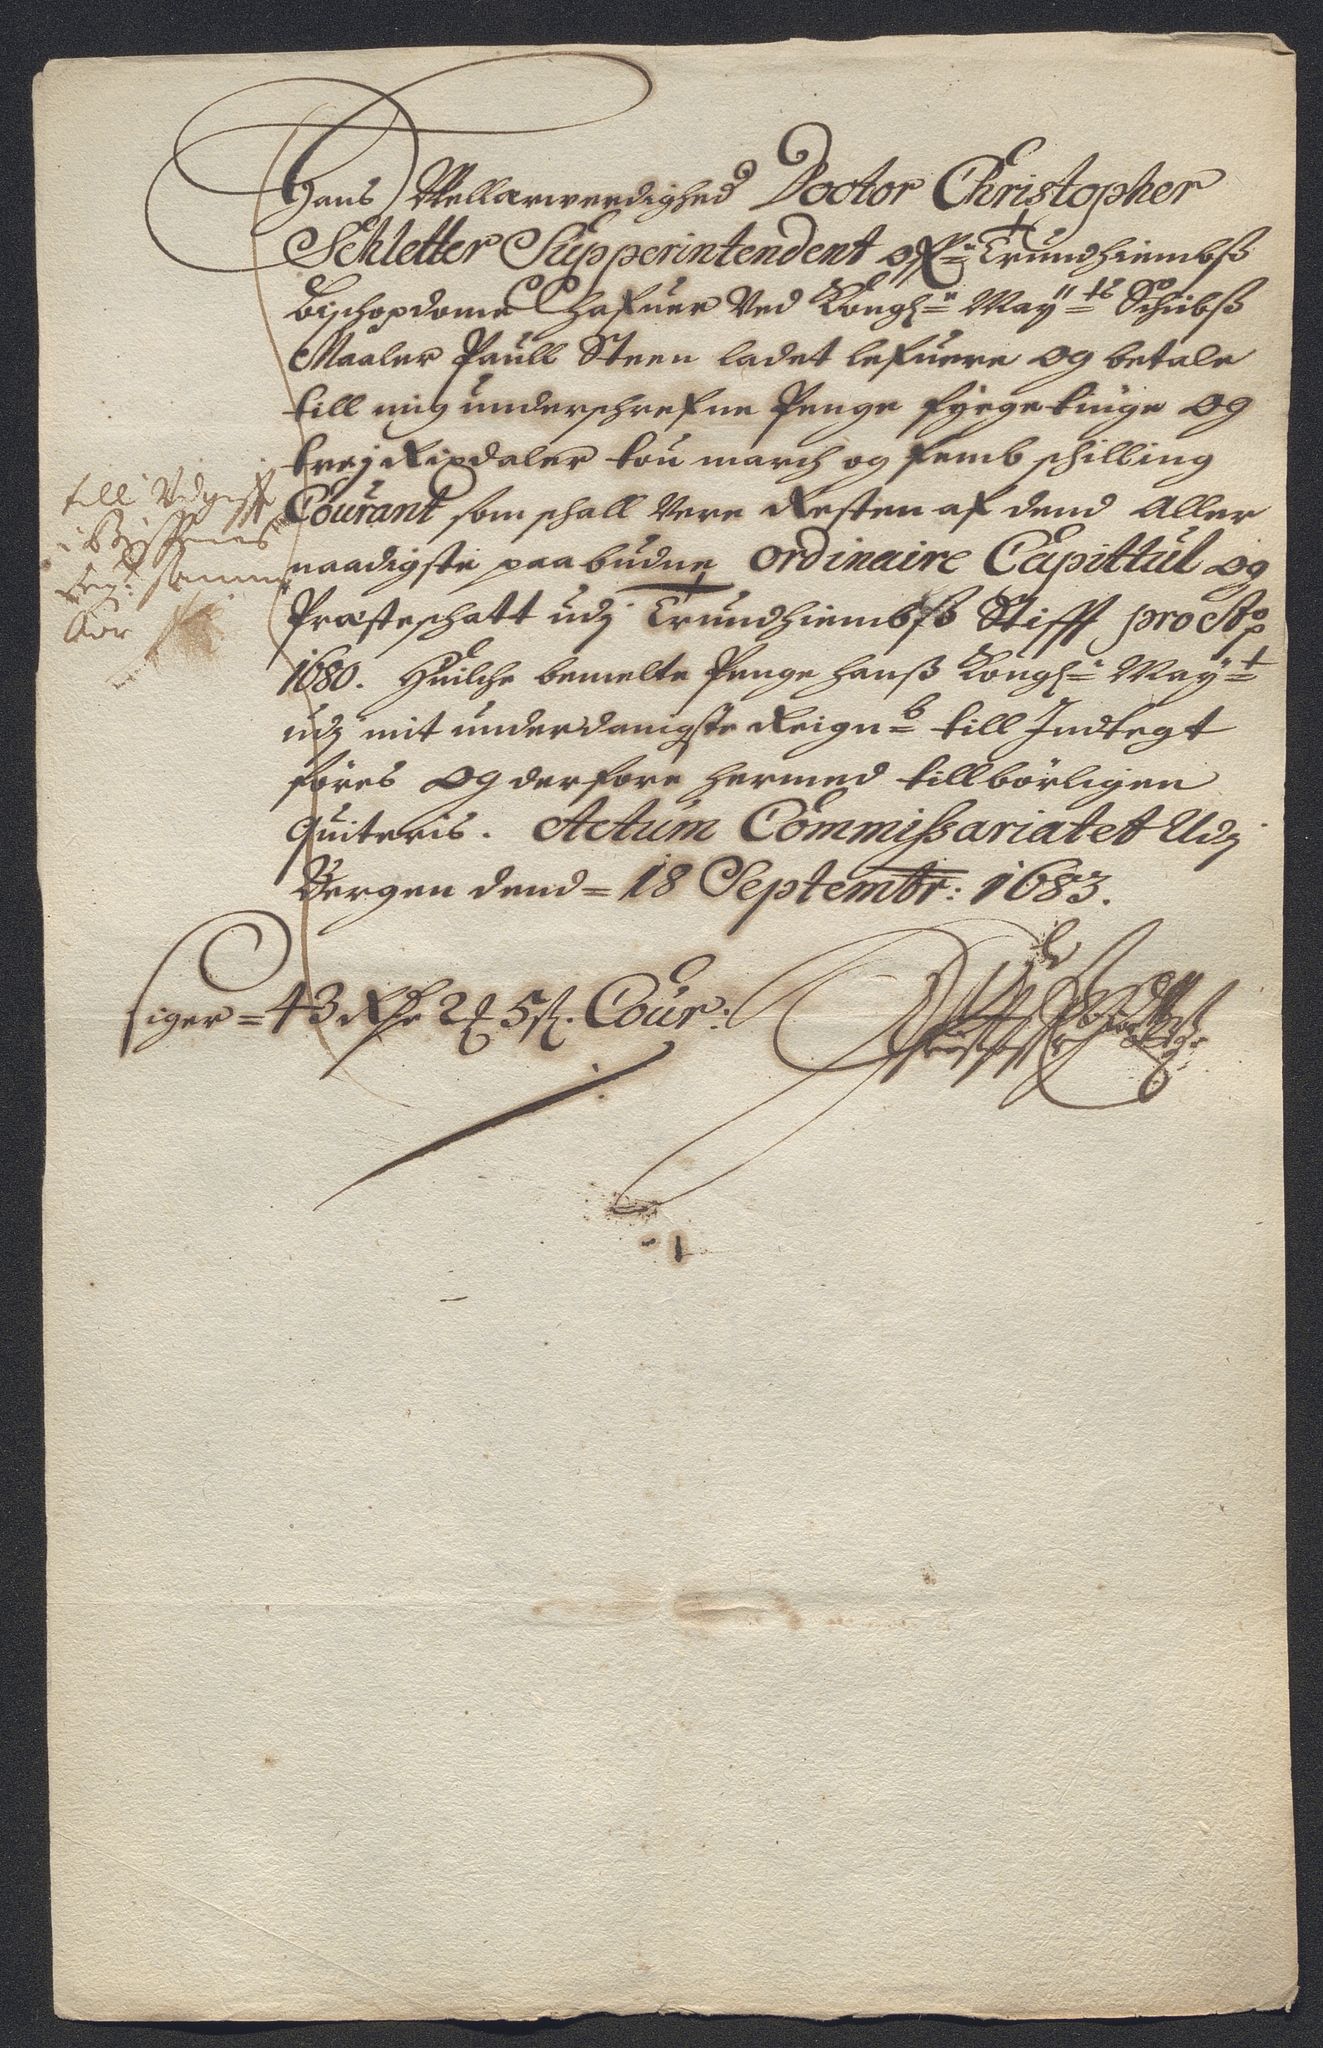 Hans Wellærwerdighed Doctor Christopher
Schletter Supperintendent ofr. Trundhiembß
Bischopdome hafuer Ved Kongl: May:ts Schibß
Maaler Paull Steen ladet lefuere og betale
till mig underschrefne Penge fyrgetiuge og
trej Rixdaler tou march og femb schilling
Courant som schall Vere Resten af dend Aller
naadigste paabudne ordinaire Capittul og
Præsteschatt udj Trundhiembß Stifft pro Ao
1680. Huilche bemelte Penge hanß Kongl: May:t
udj mit underdanigste Reign:b till Indtegt
föres og derfore hermed tillbörligen
quiteris. Actum Commissariatet Udj
Bergen dend 18 Septembr: 1683.
till Udgifft
i Bispens
samme
Aar
siger 43 Rdr 2 ℳ 5 ß. Cour: